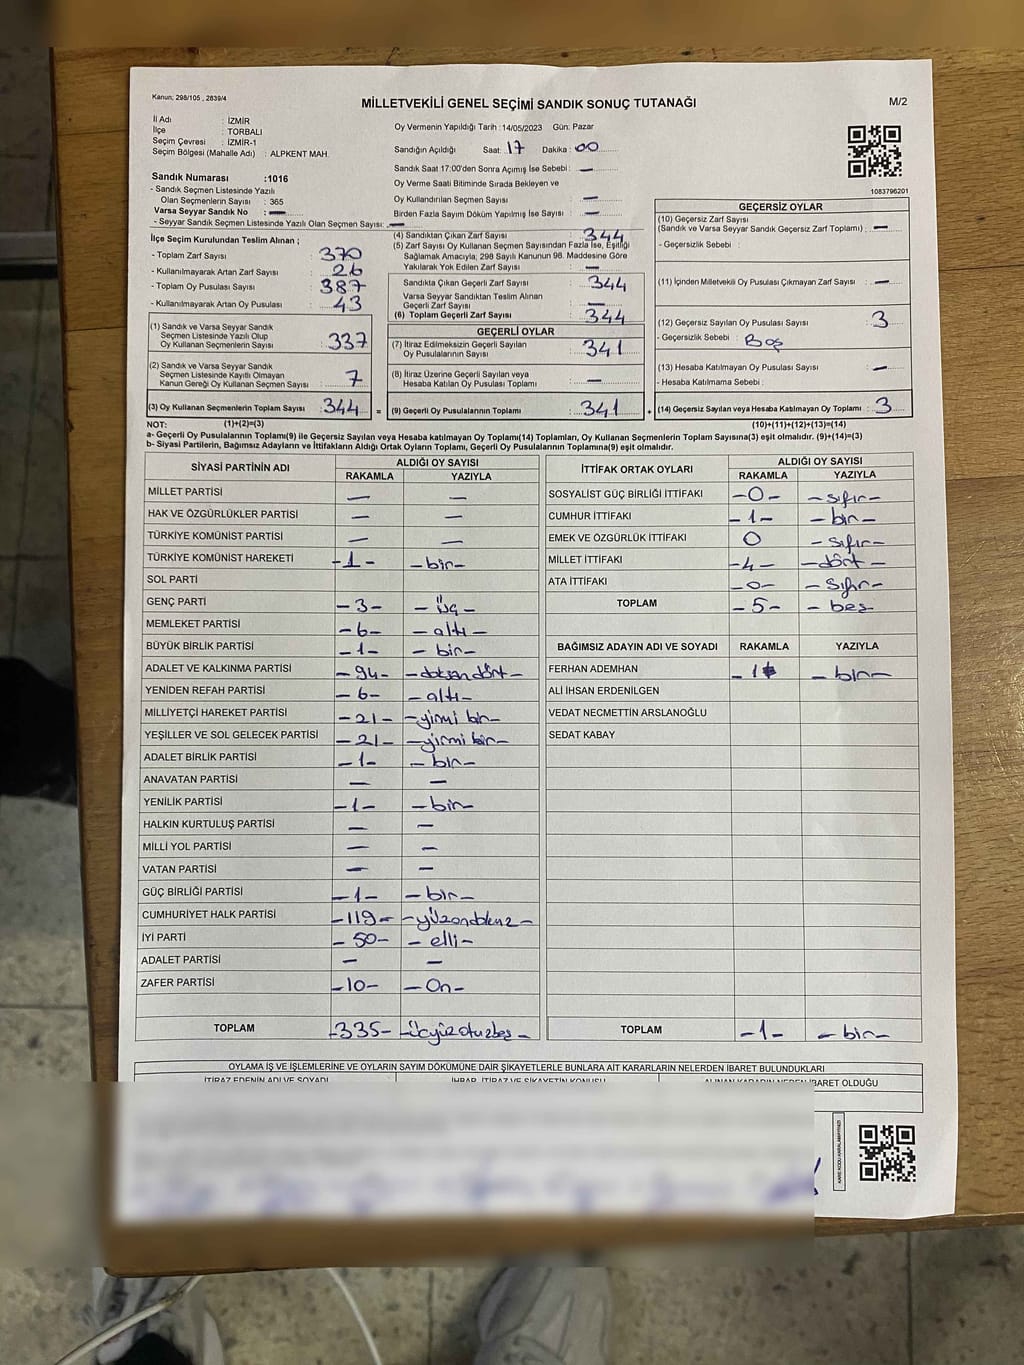 Kanun; 298/105 , 2839/4
MİLLETVEKİLİ GENEL SEÇİMİ SANDIK SONUÇ TUTANAĞI
M/2
İl Adı : İZMİR
İlçe : TORBALI
Seçim Çevresi : İZMİR-1
Seçim Bölgesi (Mahalle Adı) : ALPKENT MAH.
Oy Vermenin Yapıldığı Tarih :14/05/2023 Gün: Pazar
Sandığın Açıldığı Saat: 17 Dakika : 00
Sandık Saat 17:00'den Sonra Açımış İse Sebebi : —
Oy Verme Saati Bitiminde Sırada Bekleyen ve
Oy Kullandırılan Seçmen Sayısı : —
Birden Fazla Sayım Döküm Yapılmış İse Sayısı : —
1083796201
Sandık Numarası :1016
- Sandık Seçmen Listesinde Yazılı
Olan Seçmenlerin Sayısı : 365
Varsa Seyyar Sandık No : —
- Seyyar Sandık Seçmen Listesinde Yazılı Olan Seçmen Sayısı: —
İlçe Seçim Kurulundan Teslim Alınan ;
- Toplam Zarf Sayısı : 370
- Kullanılmayarak Artan Zarf Sayısı : 26
- Toplam Oy Pusulası Sayısı : 387
- Kullanılmayarak Artan Oy Pusulası : 43
(1) Sandık ve Varsa Seyyar Sandık
Seçmen Listesinde Yazılı Olup
Oy Kullanan Seçmenlerin Sayısı : 337
(2) Sandık ve Varsa Seyyar Sandık
Seçmen Listesinde Kayıtlı Olmayan
Kanun Gereği Oy Kullanan Seçmen Sayısı : 7
(3) Oy Kullanan Seçmenlerin Toplam Sayısı : 344 =
(4) Sandıktan Çıkan Zarf Sayısı : 344
(5) Zarf Sayısı Oy Kullanan Seçmen Sayısından Fazla İse, Eşitliği
Sağlamak Amacıyla; 298 Sayılı Kanunun 98. Maddesine Göre
Yakılarak Yok Edilen Zarf Sayısı : —
Sandıkta Çıkan Geçerli Zarf Sayısı : 344
Varsa Seyyar Sandıktan Teslim Alınan
Geçerli Zarf Sayısı : —
(6) Toplam Geçerli Zarf Sayısı : 344
GEÇERLİ OYLAR
(7) İtiraz Edilmeksizin Geçerli Sayılan
Oy Pusulalarının Sayısı : 341
(8) İtiraz Üzerine Geçerli Sayılan veya
Hesaba Katılan Oy Pusulası Toplamı : —
(9) Geçerli Oy Pusulalarının Toplamı : 341 +
GEÇERSİZ OYLAR
(10) Geçersiz Zarf Sayısı
(Sandık ve Varsa Seyyar Sandık Geçersiz Zarf Toplamı) : —
- Geçersizlik Sebebi :
(11) İçinden Milletvekili Oy Pusulası Çıkmayan Zarf Sayısı : —
(12) Geçersiz Sayılan Oy Pusulası Sayısı : 3
- Geçersizlik Sebebi : Boş
(13) Hesaba Katılmayan Oy Pusulası Sayısı : —
- Hesaba Katılmama Sebebi :
(14) Geçersiz Sayılan veya Hesaba Katılmayan Oy Toplamı : 3
NOT: (1)+(2)=(3) (10)+(11)+(12)+(13)=(14)
a- Geçerli Oy Pusulalarının Toplamı(9) ile Geçersiz Sayılan veya Hesaba katılmayan Oy Toplamı(14) Toplamları, Oy Kullanan Seçmenlerin Toplam Sayısına(3) eşit olmalıdır. (9)+(14)=(3)
b- Siyasi Partilerin, Bağımsız Adayların ve İttifakların Aldığı Oyların Toplamı, Geçerli Oy Pusulalarının Toplamına(9) eşit olmalıdır.
SİYASİ PARTİNİN ADI ALDIĞI OY SAYISI
RAKAMLA YAZIYLA
MİLLET PARTİSİ — —
HAK VE ÖZGÜRLÜKLER PARTİSİ — —
TÜRKİYE KOMÜNİST PARTİSİ — —
TÜRKİYE KOMÜNİST HAREKETİ -1- -bir-
SOL PARTİ
GENÇ PARTİ -3- -üç-
MEMLEKET PARTİSİ -6- -altı-
BÜYÜK BİRLİK PARTİSİ -1- -bir-
ADALET VE KALKINMA PARTİSİ -94- -doksandört-
YENİDEN REFAH PARTİSİ -6- -altı-
MİLLİYETÇİ HAREKET PARTİSİ -21- -yirmi bir-
YEŞİLLER VE SOL GELECEK PARTİSİ -21- -yirmi bir-
ADALET BİRLİK PARTİSİ -1- -bir-
ANAVATAN PARTİSİ — —
YENİLİK PARTİSİ -1- -bir-
HALKIN KURTULUŞ PARTİSİ — —
MİLLİ YOL PARTİSİ — —
VATAN PARTİSİ — —
GÜÇ BİRLİĞİ PARTİSİ -1- -bir-
CUMHURİYET HALK PARTİSİ -119-
İYİ PARTİ -50- -elli-
ADALET PARTİSİ — —
ZAFER PARTİSİ -10- -On-
TOPLAM -335- -üçyüzotuzbeş-
İTTİFAK ORTAK OYLARI ALDIĞI OY SAYISI
RAKAMLA YAZIYLA
SOSYALİST GÜÇ BİRLİĞİ İTTİFAKI -0- -sıfır-
CUMHUR İTTİFAKI -1- -bir-
EMEK VE ÖZGÜRLÜK İTTİFAKI 0 -sıfır-
MİLLET İTTİFAKI -4- -dört-
ATA İTTİFAKI -0- -Sıfır-
TOPLAM -5- -beş
BAĞIMSIZ ADAYIN ADI VE SOYADI RAKAMLA YAZIYLA
FERHAN ADEMHAN -1 -bir-
ALİ İHSAN ERDENİLGEN
VEDAT NECMETTİN ARSLANOĞLU
SEDAT KABAY
TOPLAM -1- -bir-
OYLAMA İŞ VE İŞLEMLERİNE VE OYLARIN SAYIM DÖKÜMÜNE DAİR ŞİKAYETLERLE BUNLARA AİT KARARLARIN NELERDEN İBARET BULUNDUKLARI
İTİRAZ EDENİN ADI VE SOYADI İHBAR, İTİRAZ VE ŞİKAYETİN KONUSU ALINAN KARARIN NEDEN İBARET OLDUĞU